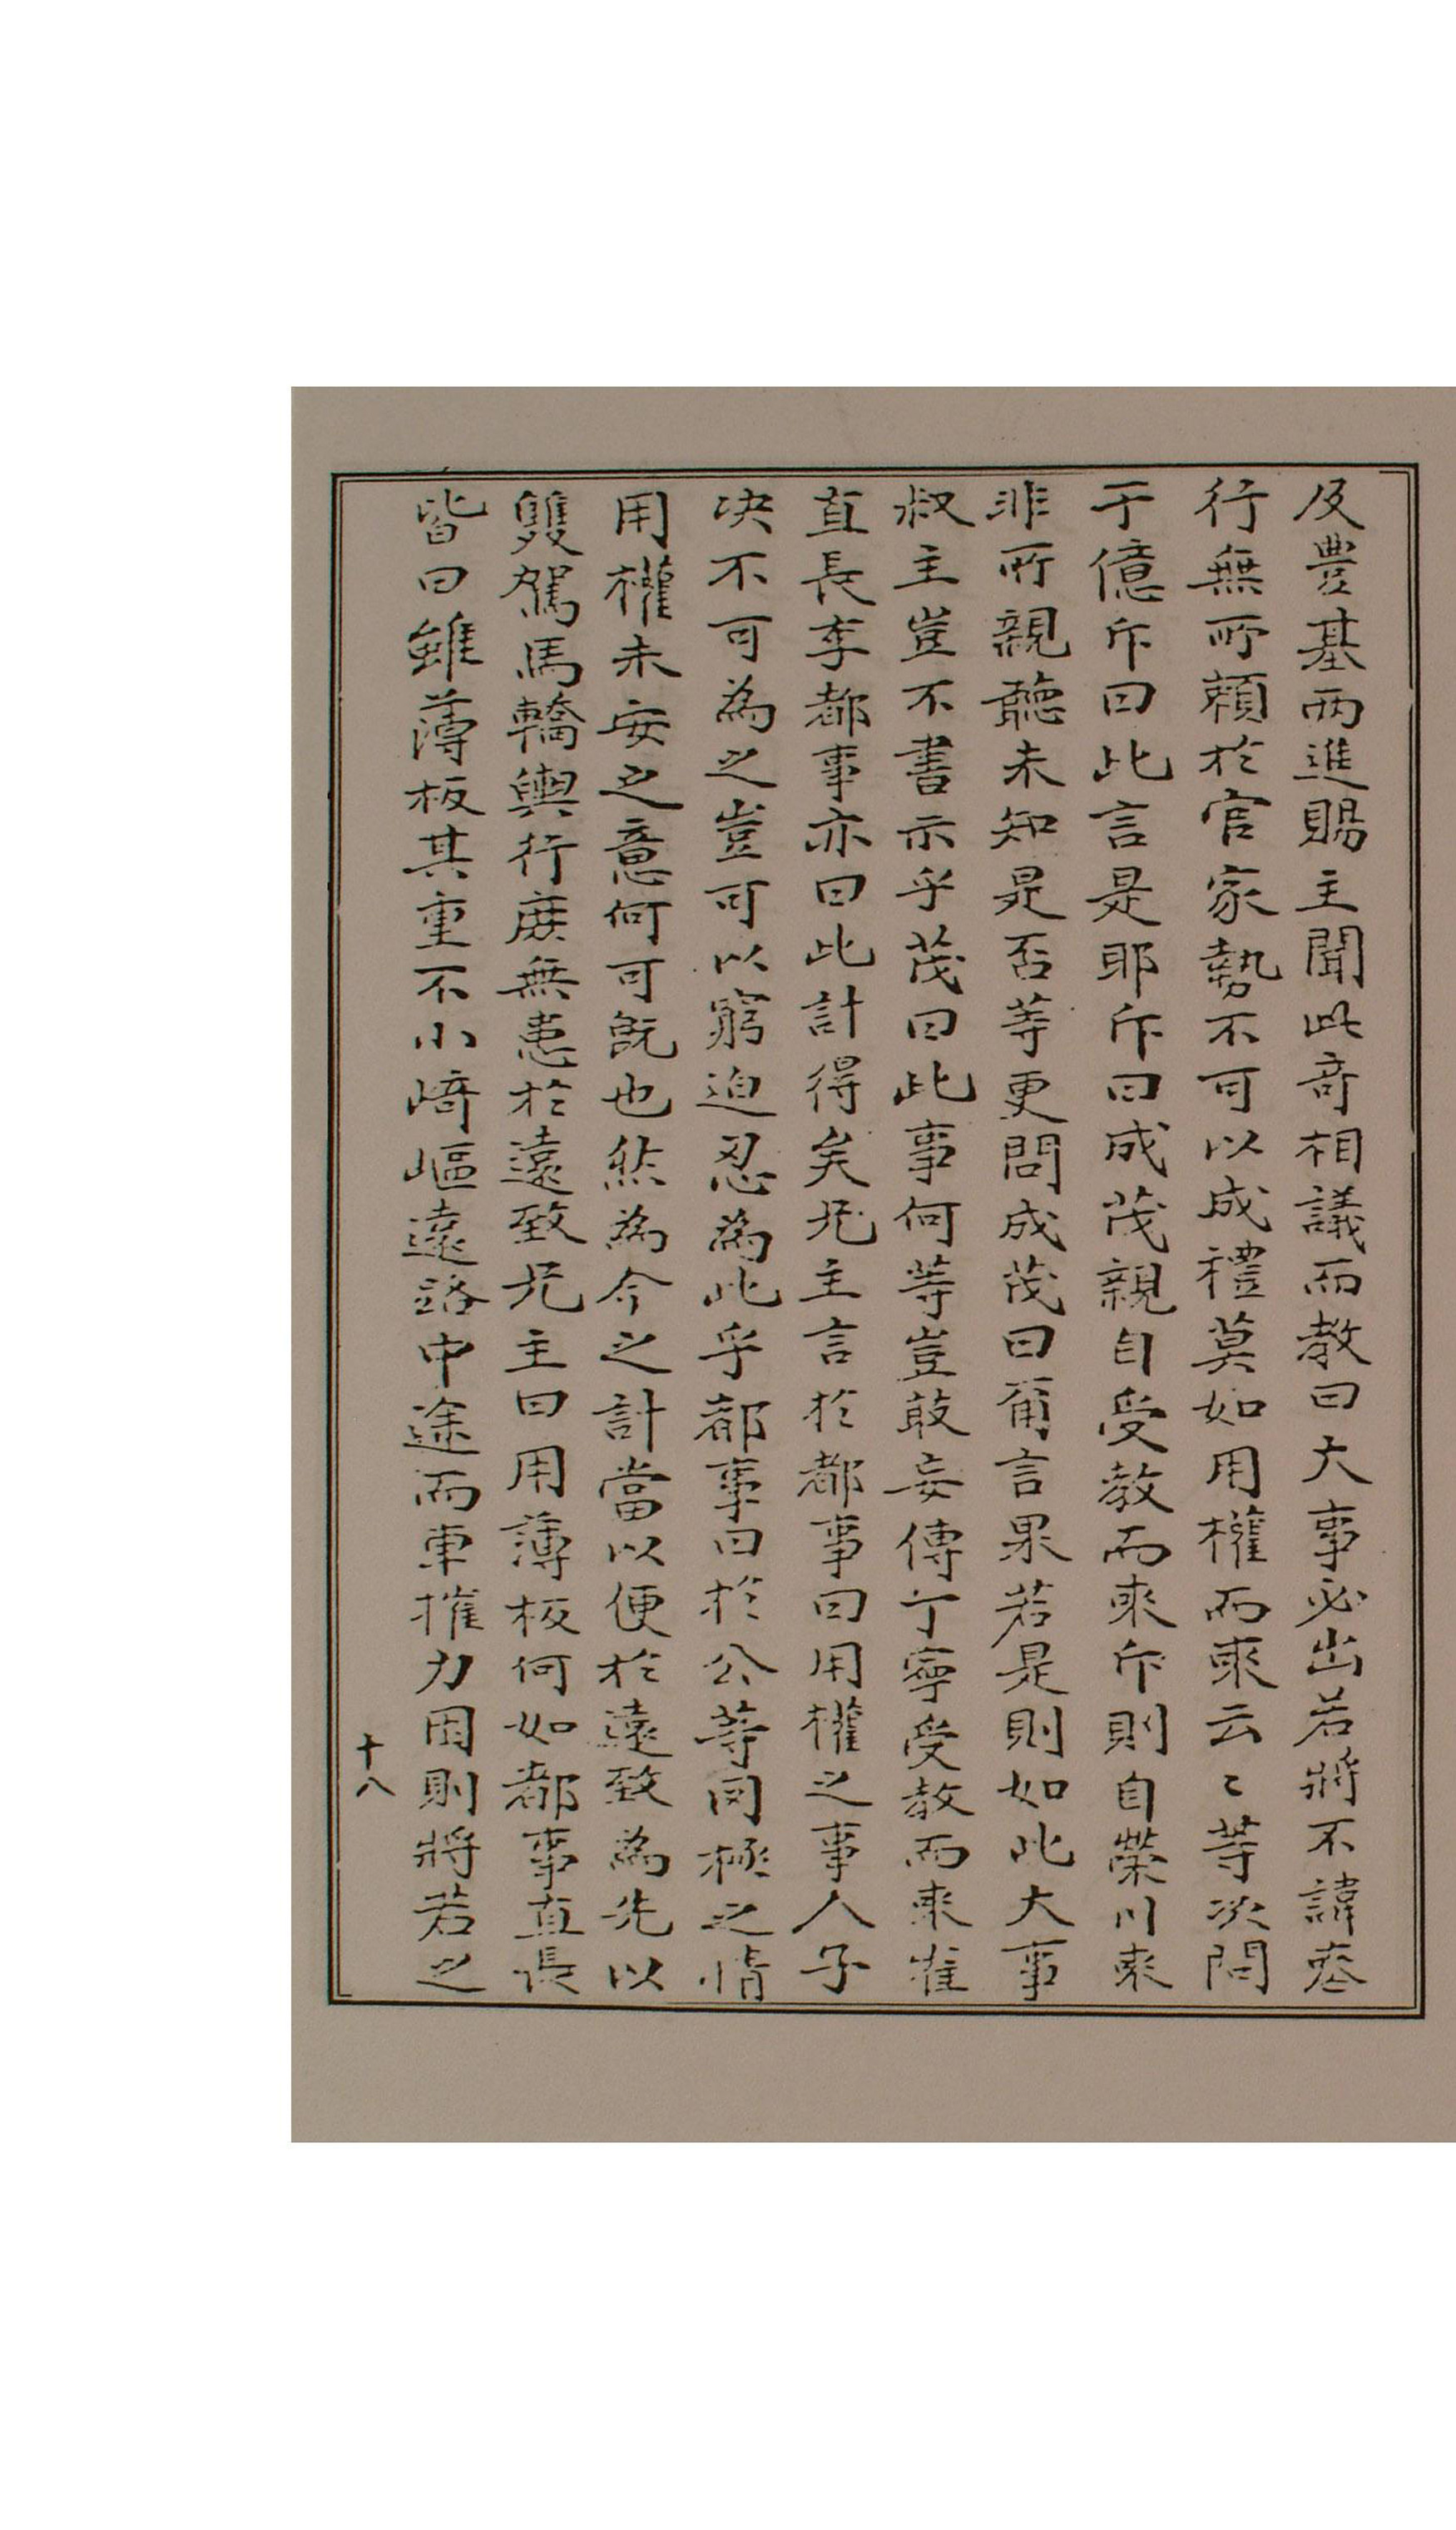 及豊基兩進賜主聞此竒相議而教曰大事必出若將不諱逩
行無所頼扵官家勢不可以成禮莫如用權而来云〻等次問
于億斤曰此言是耶斤曰成茂親自受教而来斤則自榮川来
非所親聽未知是否等更問成茂曰甭言果若是則如此大事
叔主豈不書示乎茂曰此事何等豈敢妄傳丁寧受教而来崔
直長李都事亦曰此計得矣兄主言扵都事曰用權之事人子
决不可為之豈可以窮迫忍為此乎都事曰扵公等罔極之情
用權未安之意何可旣也然為今之計當以便扵遠致為先以
雙駕馬轎輿行庶無患扵遠致兄主曰用薄板何如都事直長
皆曰雖薄板其重不小﨑嶇遠路中途而車摧力困則將若之
十八